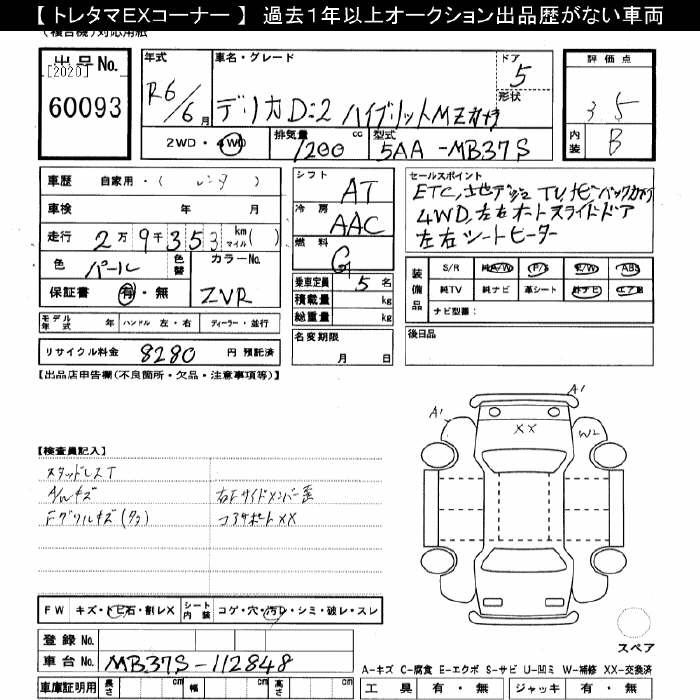 【 トレタマEXコーナー 】 過去1年以上オークション出品歴がない車両
出品No.
[2020]
60093
年式
R6/6月
車名・グレード
デリカD:2 ハイブリットMZ
ドア
5
形状
2WD・4WD
排気量
1200cc
型式
5AA-MB37S
評価点
3 5
内装
B
車歴 自家用・( レンタ )
車検 年 月
走行 2万9千353 km マイル( )
色 パール 色替
カラーNo.
ZVR
保証書 有・無
モデル年式 年 ハンドル 左・右 ディーラー・並行
リサイクル料金 8280 円 預託済
シフト AT
冷房 AAC
燃料 G
乗車定員 5 名
積載量 kg
総重量 kg
名変期限
月 日
セールスポイント
ETC,地デジ TV,ナビ バックカメラ
4WD,左右オートスライドドア
左右シートヒーター
装備品
S/R 純A/W P/S P/W ABS
純TV 純ナビ 革シート 社ナビ エアB
ナビ型番:
後日品
【出品店申告欄(不良箇所・欠品・注意事項等)】
【検査員記入】
スタッドレスT
A/Wキズ
Fグリルキズ(ワコ)
右Fサイドメンバー歪
コアサポートXX
A1
A1
XX
W2
スペア
FW キズ・トビ石・割レX シート内装 コゲ・穴・汚レ・シミ・破レ・スレ
登録No.
車台No. MB37S-112848
車庫証明用 長さ cm 幅 cm 高さ cm
A-キズ C-腐食 E-エクボ S-サビ U-凹ミ W-補修 XX-交換済
工具 有・無 ジャッキ 有・無